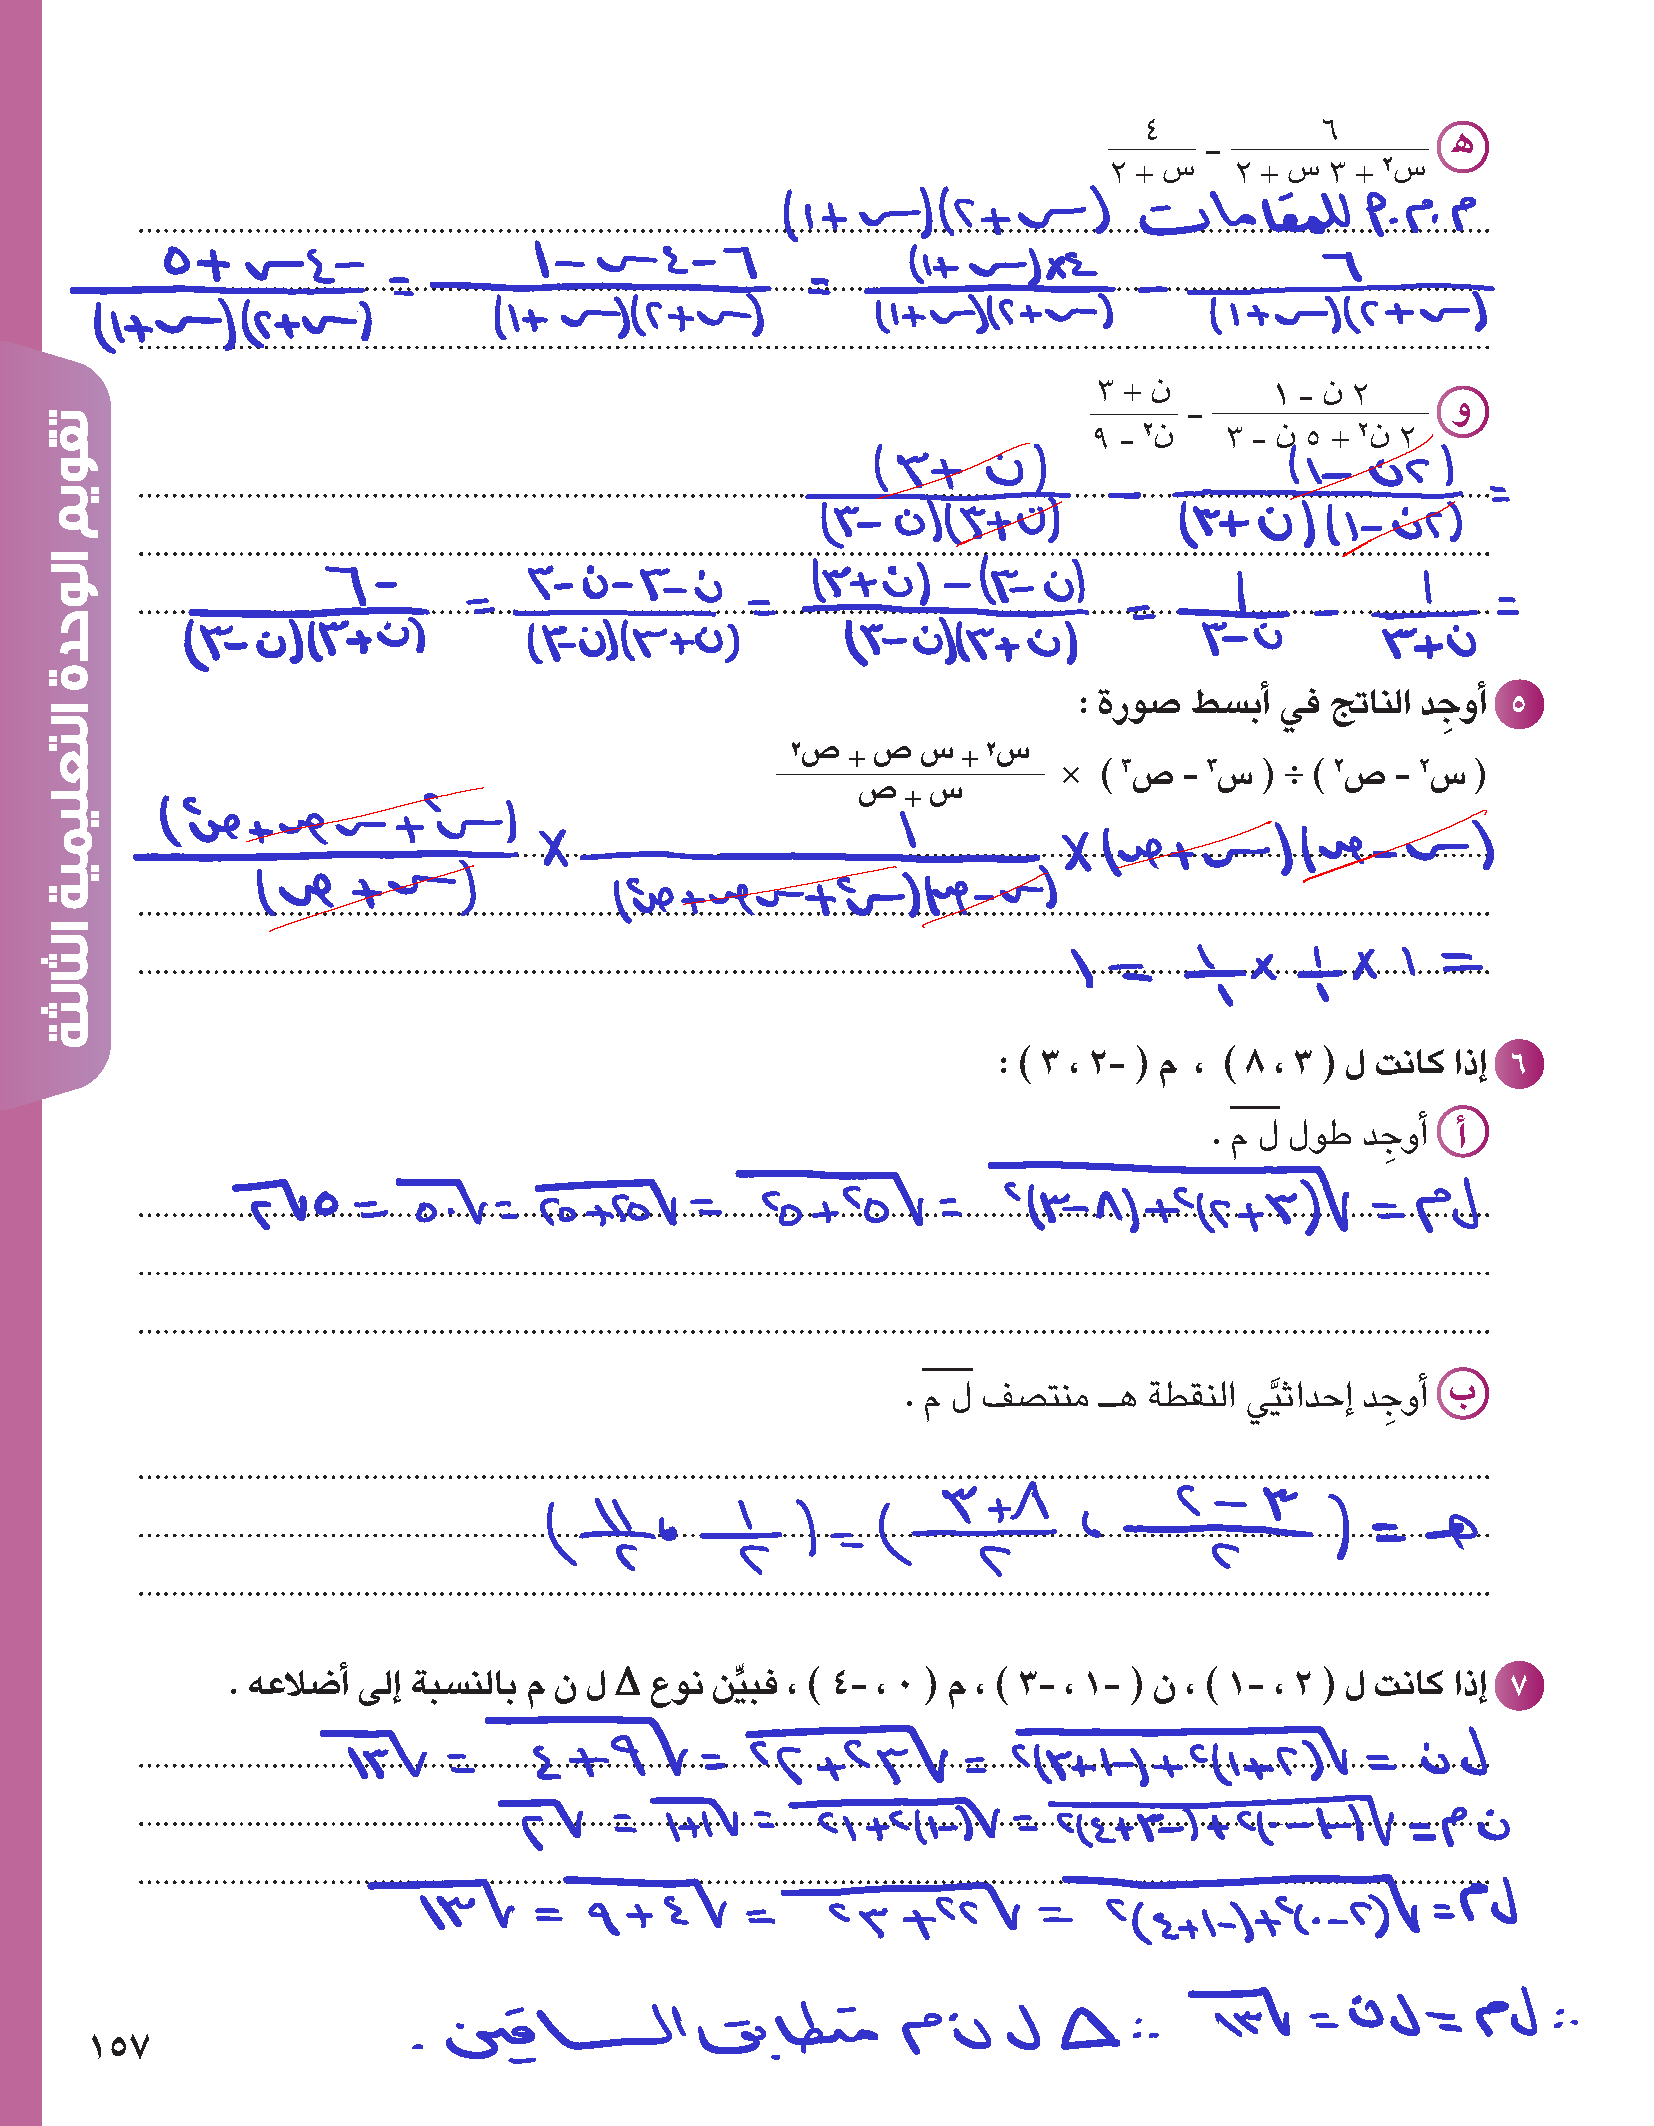 هـ ٦ / (س٢ + ٣ س + ٢) − ٤ / (س + ٢)
م.م.م للمقامات (س+٢)(س+١)
٦ / (س+٢)(س+١) − ٤×(س+١) / (س+٢)(س+١) = ٦−٤س−١ / (س+٢)(س+١) = −٤س+٥ / (س+٢)(س+١)
و (٢ ن − ١) / (٢ ن٢ + ٥ ن − ٣) − (ن + ٣) / (ن٢ − ٩)
= (٢ن−١) / (٢ن−١)(ن+٣) − (ن+٣) / (ن+٣)(ن−٣)
= ١ / ن+٣ − ١ / ن−٣ = (ن−٣)−(ن+٣) / (ن+٣)(ن−٣) = ن−٣−ن−٣ / (ن+٣)(ن−٣) = −٦ / (ن+٣)(ن−٣)
٥ أوجِد الناتج في أبسط صورة :
( س٢ − ص٢ ) ÷ ( س٣ − ص٣ ) × (س٢ + س ص + ص٢) / (س + ص)
(س−ص)(س+ص) × ١ / (س−ص)(س٢+س ص+ص٢) × (س٢+س ص+ص٢) / (س+ص)
= ١ × ١/١ × ١/١ = ١
٦ إذا كانت ل ( ٣ ، ٨ ) ، م ( −٢ ، ٣ ) :
أ أوجِد طول ل م .
ل م = √(٣+٢)٢+(٨−٣)٢ = √٥٢+٥٢ = √٢٥+٢٥ = √٥٠ = ٥√٢
ب أوجِد إحداثيَّي النقطة هـ منتصف ل م .
هـ = ( ٣−٢ / ٢ ، ٨+٣ / ٢ ) = ( ١/٢ ، ١١/٢ )
٧ إذا كانت ل ( ٢ ، −١ ) ، ن ( −١ ، −٣ ) ، م ( ٠ ، −٤ ) ، فبيِّن نوع Δ ل ن م بالنسبة إلى أضلاعه .
ل ن = √(٢+١)٢+(−١+٣)٢ = √٣٢+٢٢ = √٩+٤ = √١٣
ن م = √(−١−٠)٢+(−٣+٤)٢ = √(−١)٢+١٢ = √١+١ = √٢
ل م = √(٢−٠)٢+(−١+٤)٢ = √٢٢+٣٢ = √٤+٩ = √١٣
∴ ل م = ل ن = √١٣ ∴ Δ ل ن م متطابق الساقين .
تقويم الوحدة التعليمية الثالثة
١٥٧